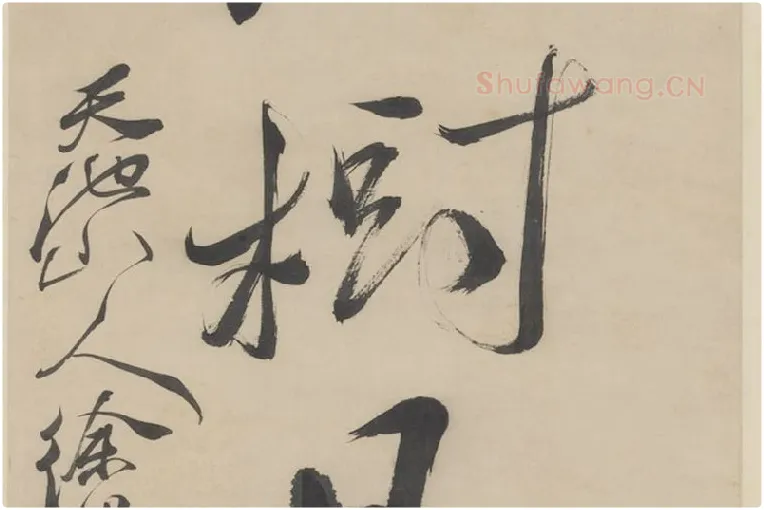 樹
天池山人徐
Shufawang.CN